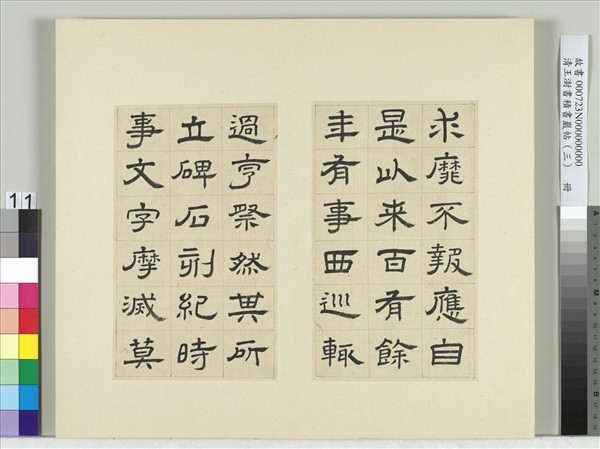 求靡不報應自
是以来百有餘
年有事西巡輒
過亨祭然其所
立碑石刻紀時
事文字摩滅莫
故書 000723N000000000
清王澍書積書巖帖(三) 冊
11
A
M
B